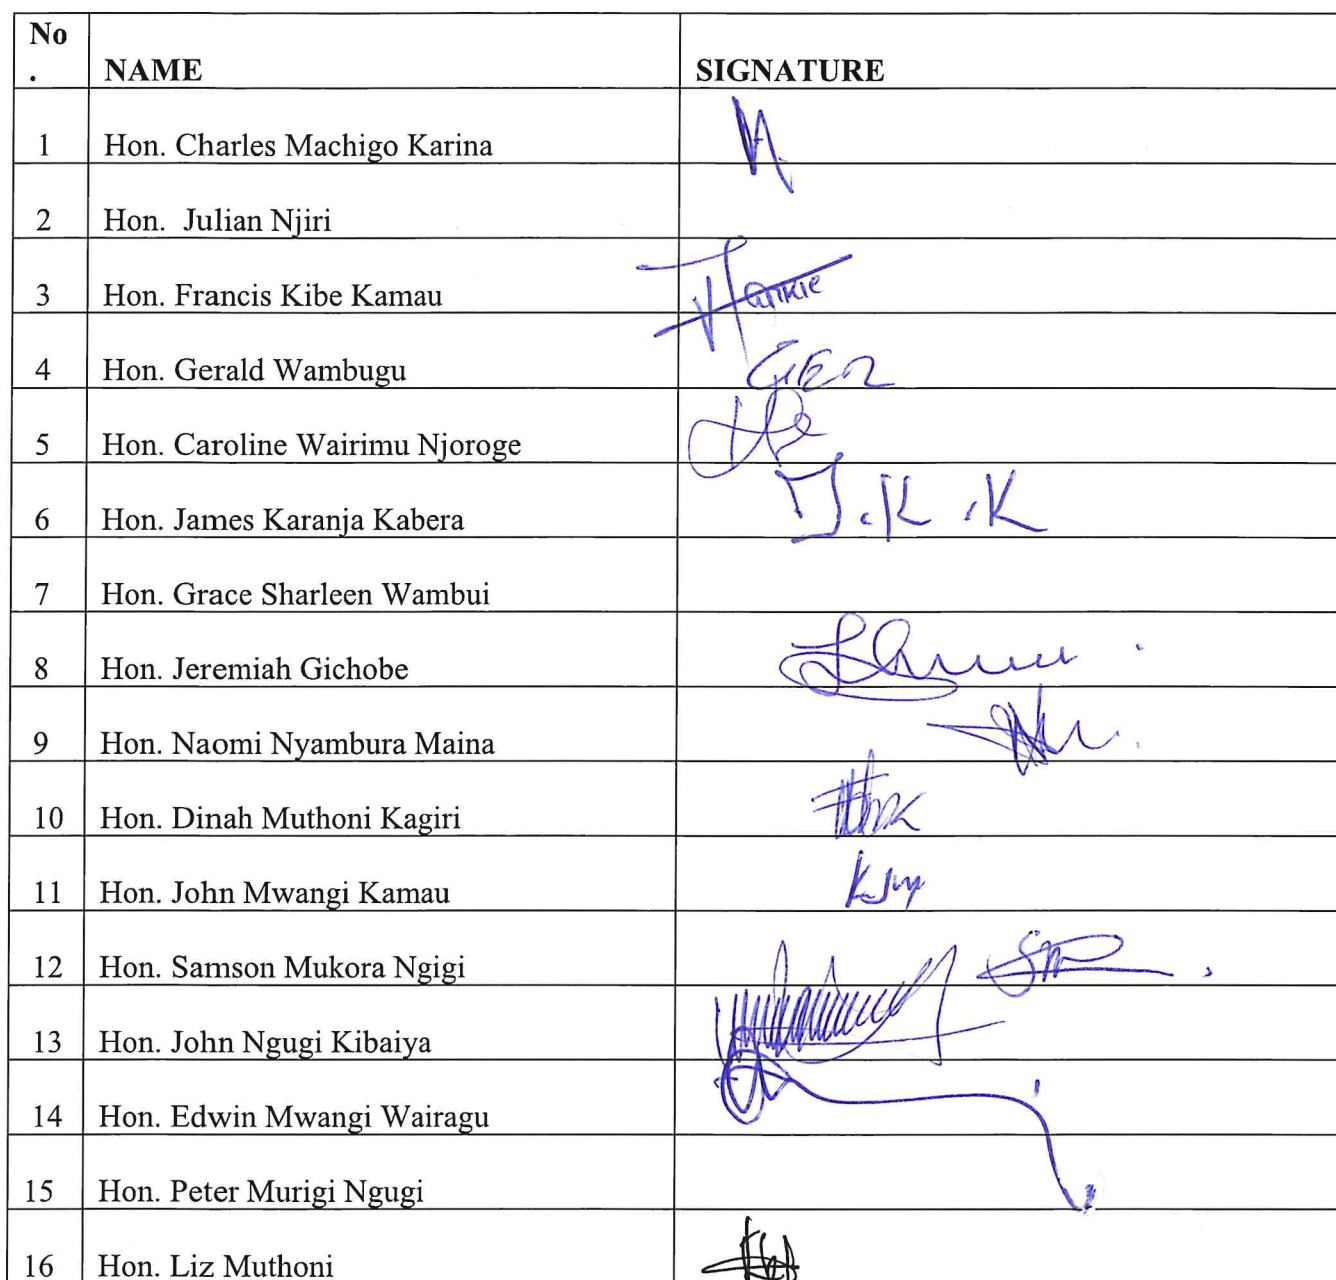 No
. NAME SIGNATURE
1 Hon. Charles Machigo Karina
2 Hon. Julian Njiri
3 Hon. Francis Kibe Kamau
4 Hon. Gerald Wambugu GER
5 Hon. Caroline Wairimu Njoroge
6 Hon. James Karanja Kabera J.K.K
7 Hon. Grace Sharleen Wambui
8 Hon. Jeremiah Gichobe
9 Hon. Naomi Nyambura Maina
10 Hon. Dinah Muthoni Kagiri
11 Hon. John Mwangi Kamau
12 Hon. Samson Mukora Ngigi
13 Hon. John Ngugi Kibaiya
14 Hon. Edwin Mwangi Wairagu
15 Hon. Peter Murigi Ngugi
16 Hon. Liz Muthoni